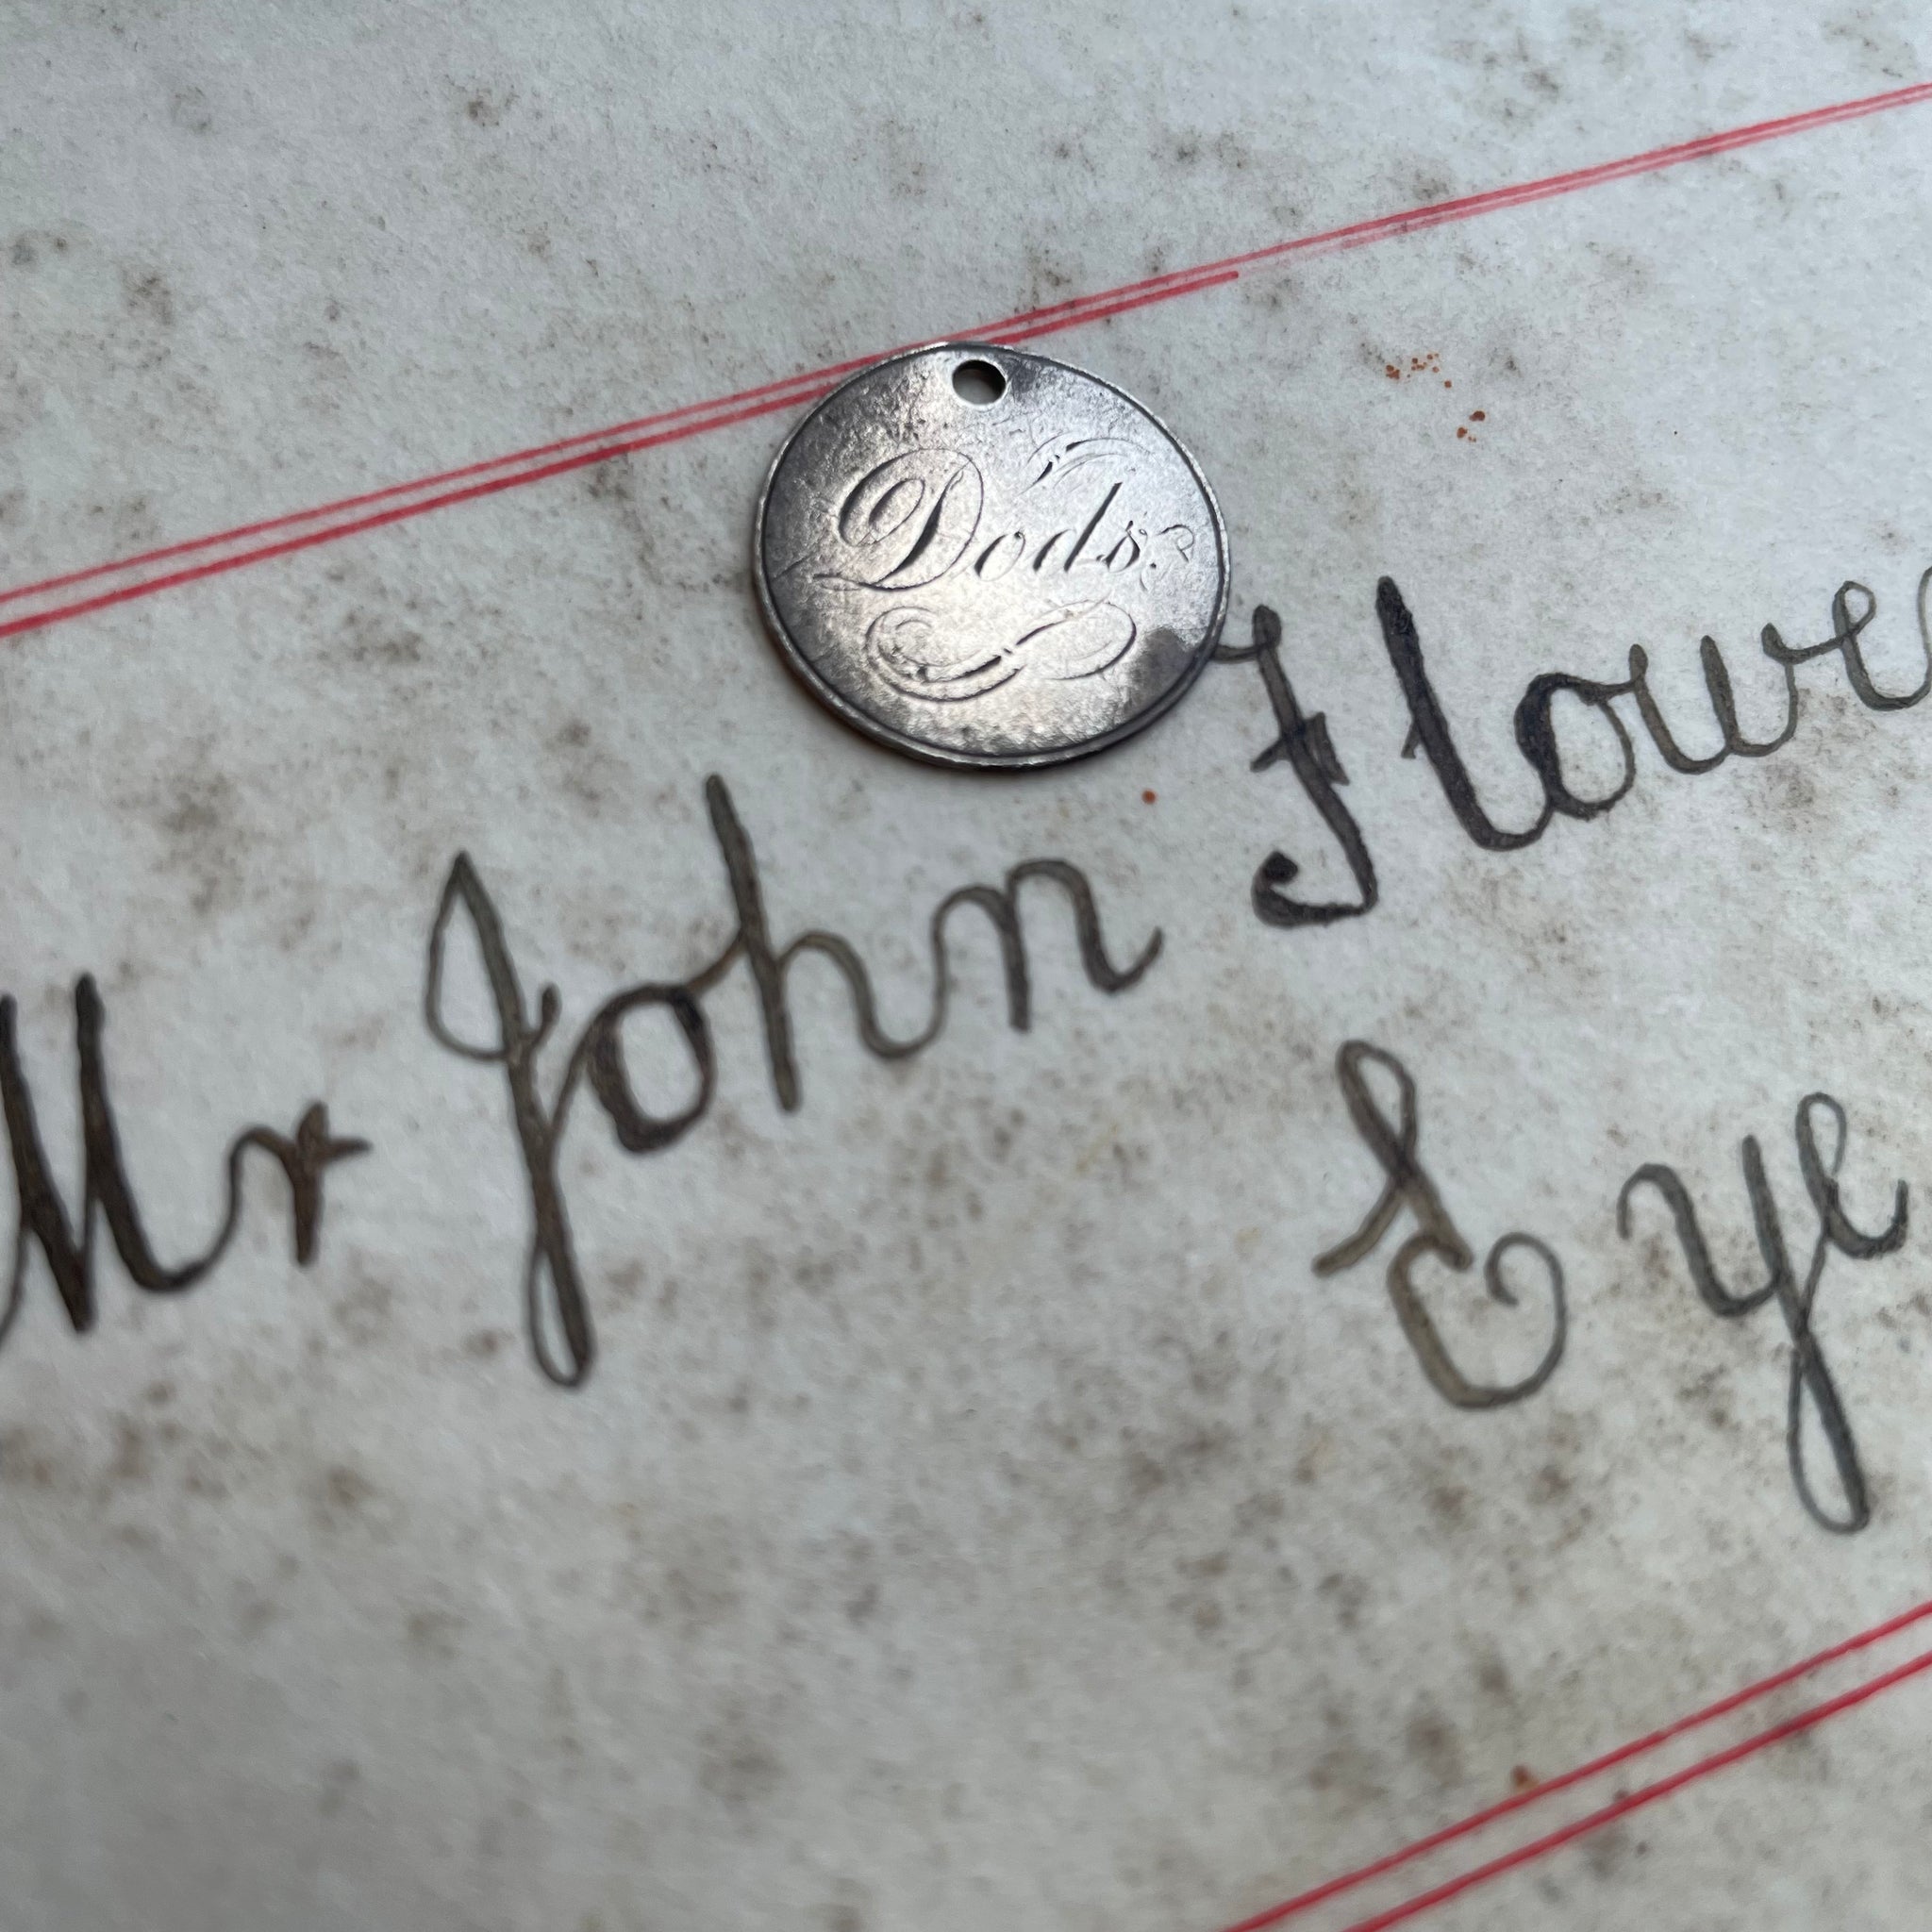 Dods.
Mr John Flowe
Eye